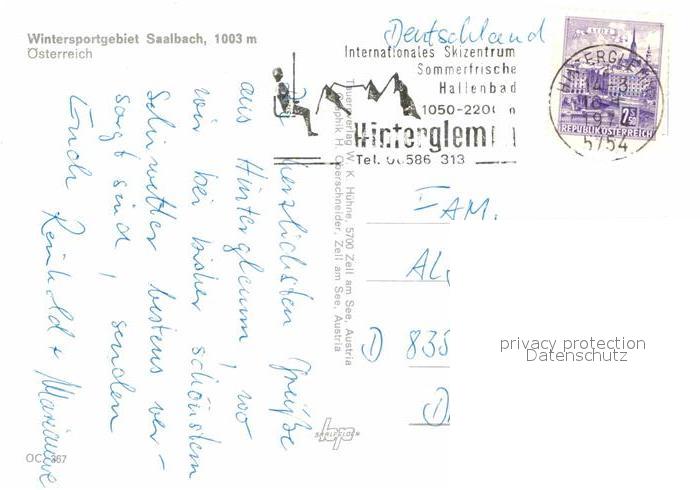 Wintersportgebiet Saalbach, 1003 m
Österreich
Die herzlichsten Grüße
aus Hinterglemm, wo
wir bei bisher schönstem
Schiwetter bestens ver-
sorgt sind, senden
Euch Reinhold + Marianne
OC
Tauernverlag W. K. Hühne, 5700 Zell am See, Austria
Graphik H. Oberschneider, Zell am See, Austria
SAALFELDEN
Deutschland
Internationales Skizentrum
Sommerfrische
Hallenbad
1050-2200 m
Hinterglemm
Tel. 06586 313
REPUBLIK ÖSTERREICH
5754
FAM.
AL,
D 835
D,
privacy protection
Datenschutz